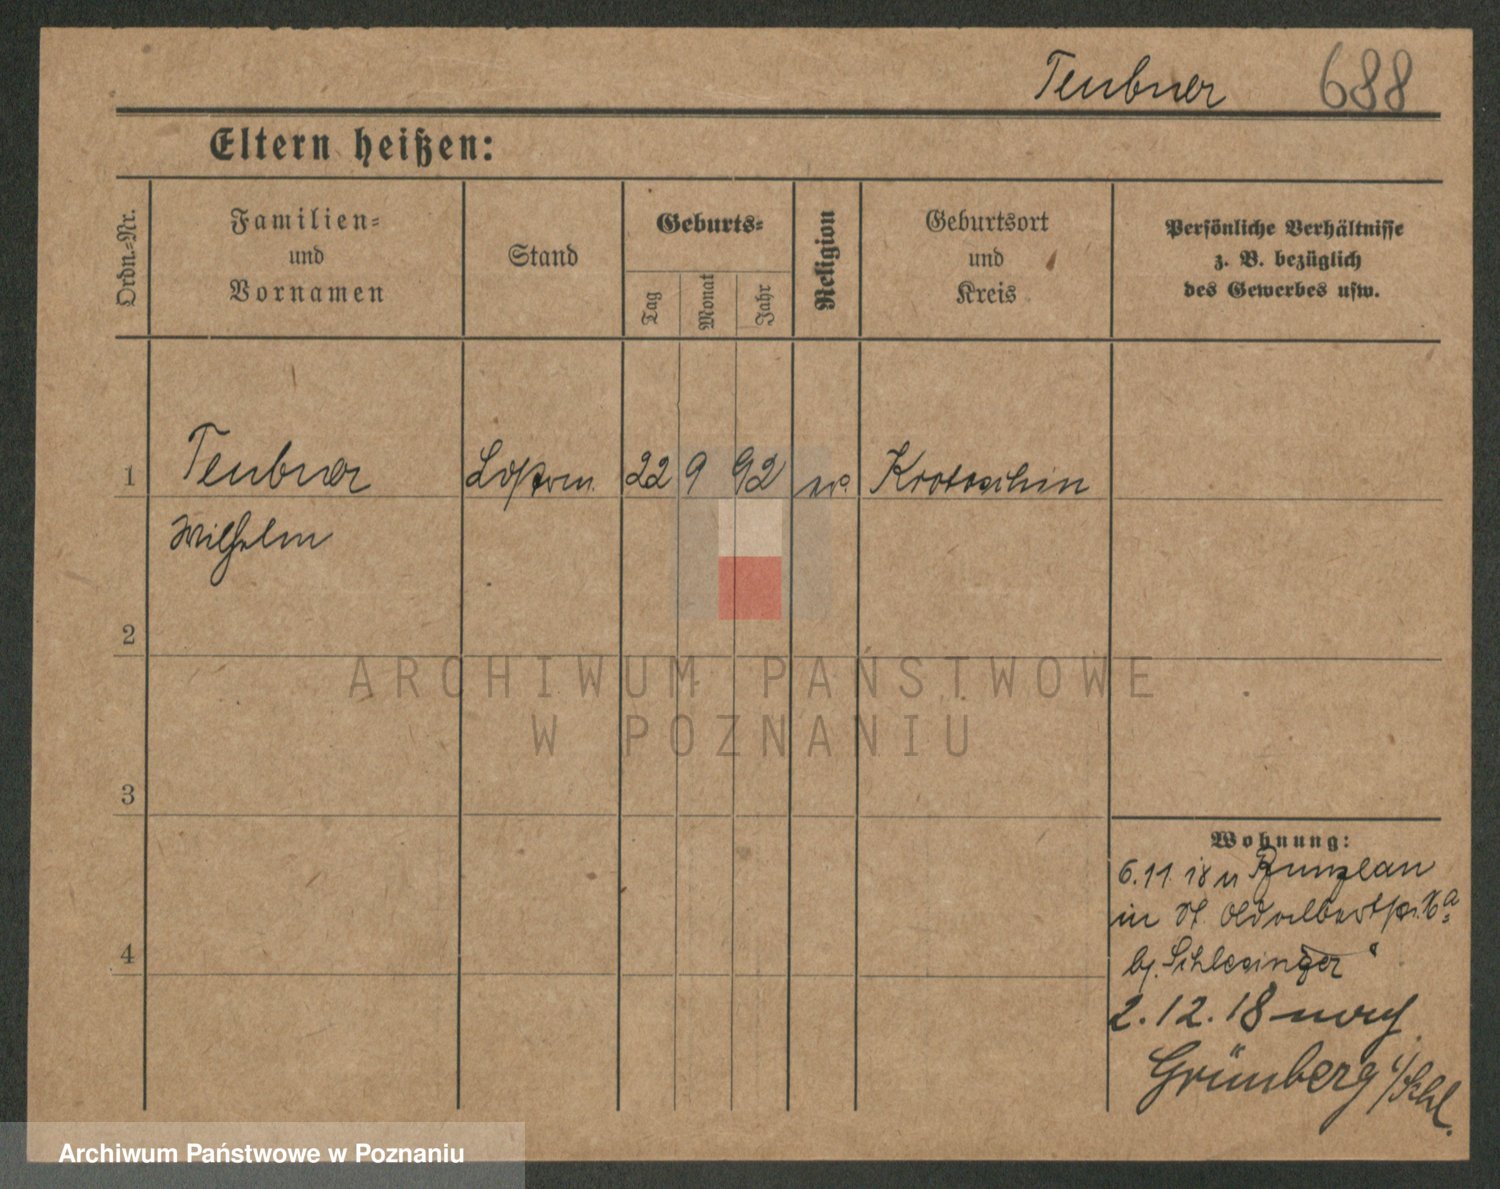 Teubner 688
Eltern heißen:
Ordn.=Nr.
Familien=
und
Vornamen
Stand
Geburts=
Tag
Monat
Jahr
Religion
Geburtsort
und
Kreis
Persönliche Verhältnisse
z. B. bezüglich
des Gewerbes usw.
1 Teubner 22 9 92 Krotoschin
Wilhelm
2
3
4
Wohnung:
6.11. 18 v Bunzlau
in St. Adalbertstr.
b/. Schlesinger
2.12.18 nach
Grünberg i/Schl.
ARCHIWUM PAŃSTWOWE
W POZNANIU
Archiwum Państwowe w Poznaniu